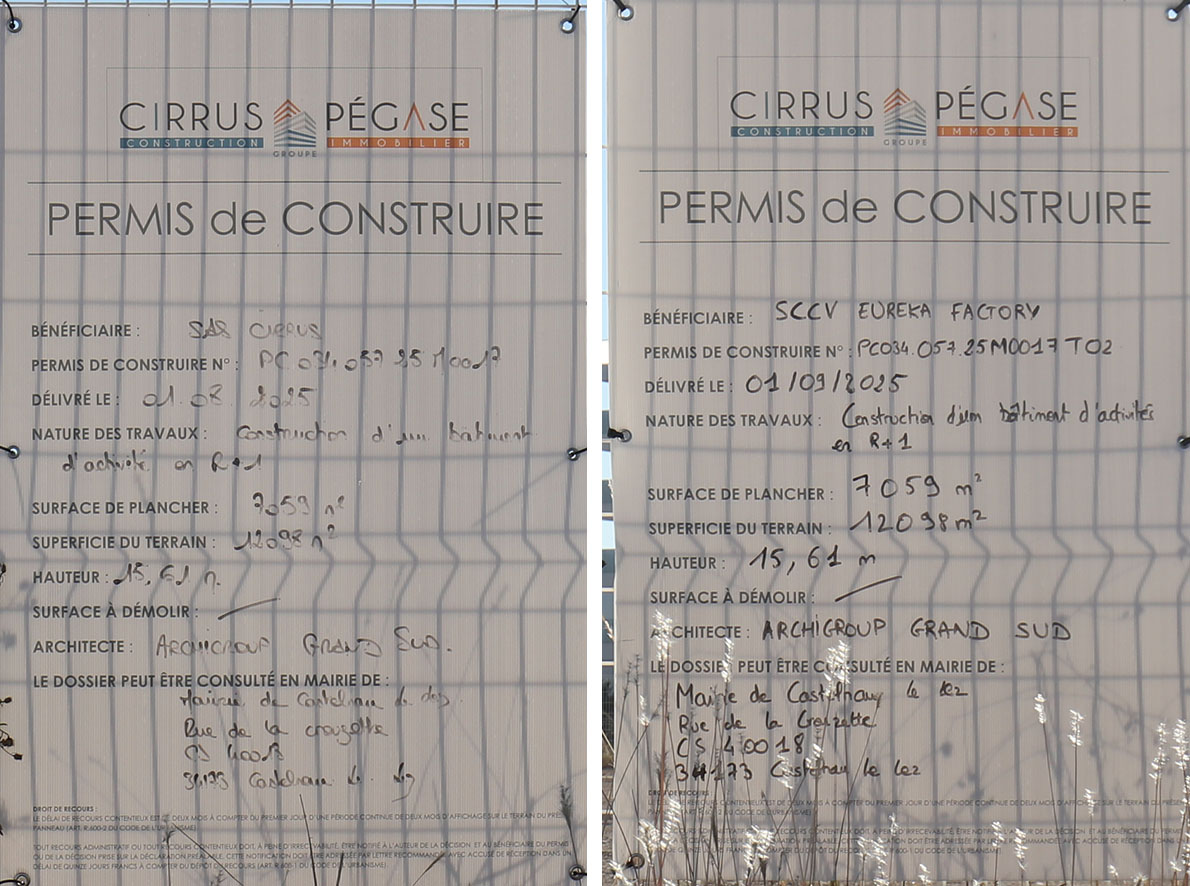 CIRRUS PÉGASE
CONSTRUCTION IMMOBILIER
GROUPE
PERMIS de CONSTRUIRE
BÉNÉFICIAIRE : SAS CIRRUS
PERMIS DE CONSTRUIRE N° : PC 034.057 25 M0017
DÉLIVRÉ LE : 01.08.2025
NATURE DES TRAVAUX : Construction d'un bâtiment
d'activité en R+1
SURFACE DE PLANCHER : 7059 m²
SUPERFICIE DU TERRAIN : 12098 m²
HAUTEUR : 15,61 m.
SURFACE À DÉMOLIR :
ARCHITECTE : ARCHIGROUP GRAND SUD.
LE DOSSIER PEUT ÊTRE CONSULTÉ EN MAIRIE DE :
Mairie de Castelnau le lez
Rue de la crouzette
CS 40018
34173 Castelnau le lez
DROIT DE RECOURS :
LE DÉLAI DE RECOURS CONTENTIEUX EST DE DEUX MOIS À COMPTER DU PREMIER JOUR D'UNE PÉRIODE CONTINUE DE DEUX MOIS D'AFFICHAGE SUR LE TERRAIN DU PRÉSENT
PANNEAU (ART. R.600-2 DU CODE DE L'URBANISME)
TOUT RECOURS ADMINISTRATIF OU TOUT RECOURS CONTENTIEUX DOIT, À PEINE D'IRRECEVABILITÉ, ÊTRE NOTIFIÉ À L'AUTEUR DE LA DÉCISION ET AU BÉNÉFICIAIRE DU PERMIS
OU DE LA DÉCISION PRISE SUR LA DÉCLARATION PRÉALABLE. CETTE NOTIFICATION DOIT ÊTRE ADRESSÉE PAR LETTRE RECOMMANDÉE AVEC ACCUSÉ DE RÉCEPTION DANS UN
DÉLAI DE QUINZE JOURS FRANCS À COMPTER DU DÉPÔT DU RECOURS (ART. R.600-1 DU CODE DE L'URBANISME).
CIRRUS PÉGASE
CONSTRUCTION IMMOBILIER
GROUPE
PERMIS de CONSTRUIRE
BÉNÉFICIAIRE : SCCV EUREKA FACTORY
PERMIS DE CONSTRUIRE N° : PC034.057.25M0017 T02
DÉLIVRÉ LE : 01/09/2025
NATURE DES TRAVAUX : Construction d'un bâtiment d'activités
en R+1
SURFACE DE PLANCHER : 7059 m²
SUPERFICIE DU TERRAIN : 12098 m²
HAUTEUR : 15,61 m
SURFACE À DÉMOLIR :
ARCHITECTE : ARCHIGROUP GRAND SUD
LE DOSSIER PEUT ÊTRE CONSULTÉ EN MAIRIE DE :
Mairie de Castelnau le lez
Rue de la Crouzette
CS 40018
34173 Castelnau le lez